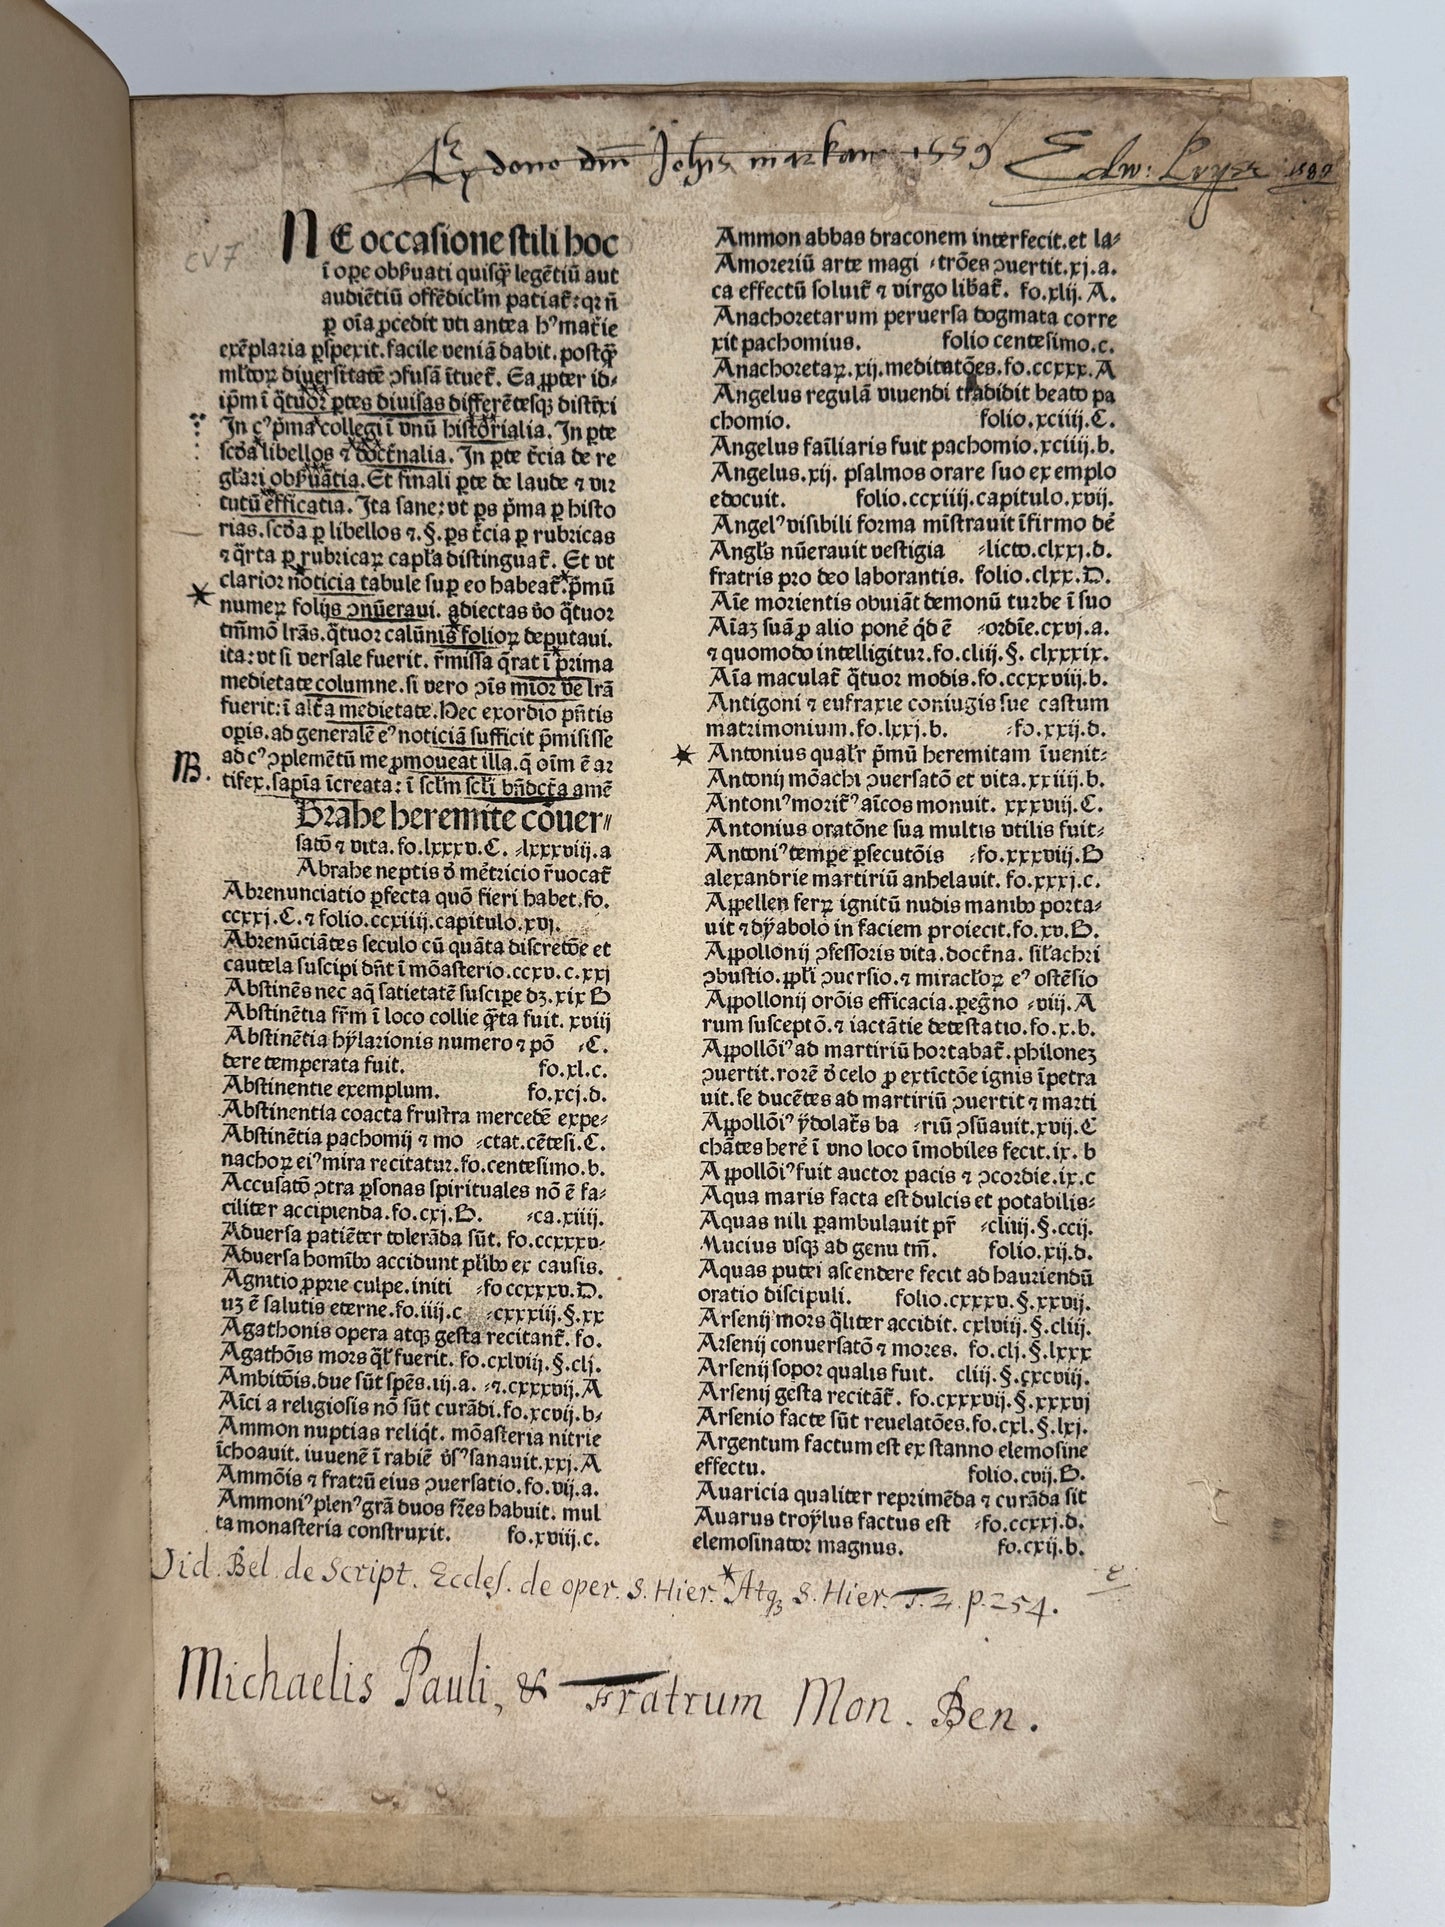 Ex dono dm̄ Joh̄is markam 1559
Edw: 1589
cv7
NE occasione stili hoc
ī oꝑe obſ̄uati quisq̄ legētiū aut
audiētiū offēdicl̄m patiat᷑: qꝛ n̄
ꝑ oīa ꝓcedit vti antea hꝰ mat̄ie
exēplaria ꝑspexit. facile veniā dabit. postq̄ꝫ
ml̄toꝝ diuersitatē ↄfusā ītuet᷑. Ea ꝓpter id⸗
ip̄m ī q̄tuor ꝑtes diuisas differētesqꝫ distīxi
In cꝰ p̄ma collegi ī vnū historialia. In ꝑte
scḋa libellos ⁊ doct̄nalia. In ꝑte t̄cia de re
gl̄ari obſ̄uātia. Et finali ꝑte de laude ⁊ vir
tutū efficatia. Ita sane: vt ꝑs p̄ma ꝑ histo
rias. scḋa ꝑ libellos ⁊. §. ꝑs t̄cia ꝑ rubricas
⁊ q̄rta ꝑ rubricaꝝ capl̄a distinguat᷑. Et vt
clarior noticia tabule suꝑ eo habeat᷑. p̄mū
numeꝝ folijs ↄnūeraui. adiectas v̊o q̄tuor
tm̄mō lr̄as. q̄tuor calūnis folioꝝ deputaui.
ita: vt si versale fuerit. r̄missa q̄rat ī prima
medietate columne. si vero ↄīs mīor ve lr̄a
fuerit: ī alt̄a medietate. Hec exordio pn̄tis
oꝑis. ad generalē eꝰ noticiā sufficit p̄misisse
ad cꝰ ↄplemētū me ꝓmoueat illa. q̄ oīm ē ar
NB.
tifex. sapīa īcreata: ī scl̄m scl̄i bn̄dct̄a amē
Brahe heremite cōuer⸗
satō ⁊ vita. fo. lxxxv. C. ⸗lxxxviij. a
Abrahe neptis d̊ mēt̄ricio r̄uocat᷑
Abrenunciatio ꝑfecta quō fieri habet. fo.
ccxxj. C. ⁊ folio. ccxiiij. capitulo. xvj.
Abrenūciātes seculo cū quāta discretōe et
cautela suscipi dn̄t ī mōasterio. ccxv. c. xxj
Abstinēs nec aq̄ satietatē susciꝑe dꝫ. xix B
Abstinētia fr̄m ī loco collie q̄ta fuit. xviij
Abstinētia hÿlarionis numero ⁊ pō ⸗C.
dere temperata fuit. fo. xl. c.
Abstinentie exemplum. fo. xcj. d.
Abstinentia coacta frustra mercedē expe⸗
Abstinētia pachomij ⁊ mo ⸗ctat. cētesi. C.
nachoꝝ eiꝰ mira recitatur. fo. centesimo. b.
Accusatō ↄtra ꝑsonas spirituales nō ē fa⸗
ciliter accipienda. fo. cxj. B. ⸗ca. xiiij.
Aduersa patiēter tolerāda sūt. fo. ccxxxv⸗
Aduersa homībꝰ accidunt pl̄ibꝰ ex causis.
Agnitio ꝓprie culpe. initi ⸗fo ccxxxv. D.
uꝫ ē salutis eterne. fo. iiij. c ⸗cxxxiij. §. xx
Agathonis opera atqꝫ gesta recitant᷑. fo.
Agathōis mors q̄l̄r fuerit. fo. cxlviij. §. clj.
Ambitōis. due sūt sp̄ēs. iij. a. ⸗⁊. cxxxvij. A
Aīci a religiosis nō sūt curādi. fo. xcvij. b⸗
Ammon nuptias reliq̄t. mōasteria nitrie
īchoauit. iuuenē ī rabiē v̊sꝰ sanauit. xxj. A
Ammōis ⁊ fratrū eius ↄuersatio. fo. vij. a.
Ammoniꝰ plenꝰ grā duos fr̄es habuit. mul
ta monasteria construxit. fo. xviij. c.
Ammon abbas draconem interfecit. et la⸗
Amoreriū arte magi ⸗trōes ↄuertit. xj. a.
ca effectū soluit᷑ ⁊ virgo lib̄at᷑. fo. xlij. A.
Anachoretarum peruersa dogmata corre
xit pachomius. folio centesimo. c.
Anachoretaꝝ. xij. meditatōes. fo. ccxxx. A
Angelus regulā viuendi tradidit beato pa
chomio. folio. xciiij. C.
Angelus faīliaris fuit pachomio. xciiij. b.
Angelus. xij. psalmos orare suo exemplo
edocuit. folio. ccxiiij. capitulo. xvij.
Angelꝰ visibili forma mīstrauit īfirmo de᷑
Angl̄s nūerauit vestigia ⸗licto. clxxj. d.
fratris pro deo laborantis. folio. clxx. D.
Aīe morientis obuiāt demonū turbe ī suo
Aīaꝫ suā ꝓ alio pone᷑ q̇d ē ⸗ordīe. cxvj. a.
⁊ quomodo intelligitur. fo. cliij. §. clxxxix.
Aīa maculat᷑ q̄tuor modis. fo. ccxxviij. b.
Antigoni ⁊ eufraxie coniugis sue castum
matrimonium. fo. lxxj. b. ⸗fo. xxij. d.
Antonius qual̄r p̄mū heremitam īuenit⸗
Antonij mōachi ↄuersatō et vita. xxiiij. b.
Antoniꝰ morit᷑ aīcos monuit. xxxviij. C.
Antonius oratōne sua multis vtilis fuit⸗
Antoniꝰ tempe ꝑsecutōis ⸗fo. xxxviij. B
alexandrie martiriū anhelauit. fo. xxxj. c.
Appellen ferꝝ ignitū nudis manibꝰ porta⸗
uit ⁊ dÿabolō in faciem proiecit. fo. xv. B.
Appollonij ↄfessoris vita. doct̄na. sil̄achri
ↄbustio. ppl̄i ↄuersio. ⁊ miracl̄oꝝ eꝰ ostēsio
Appollonij orōis efficacia. ꝑeg̊no ⸗viij. A
rum susceptō. ⁊ iactātie detestatio. fo. x. b.
Appollōiꝰ ad martiriū hortabat᷑. philoneꝫ
ↄuertit. rorē d̊ celo ꝓ extīctōe ignis īpetra
uit. se ducētes ad martiriū ↄuertit ⁊ marti
Appollōiꝰ ÿdolat᷑s ba ⸗riū ↄsūauit. xvij. C
chātes here᷑ ī vno loco īmobiles fecit. ix. b
Appollōiꝰ fuit auctor pacis ⁊ ↄcordie. ix. c
Aqua maris facta est dulcis et potabilis⸗
Aquas nili ꝑambulauit pr̄ ⸗cliiij. §. ccij.
Mucius vsqꝫ ad genu tm̄. folio. xij. d.
Aquas putei ascendere fecit ad hauriendū
oratio discipuli. folio. cxxxv. §. xxvij.
Arsenij mors q̄liter accidit. cxlviij. §. cliij.
Arsenij conuersatō ⁊ mores. fo. clj. §. lxxx
Arsenij sopor qualis fuit. cliij. §. cxcviij.
Arsenij gesta recitāt᷑. fo. cxxxvij. §. xxxvj
Arsenio facte sūt reuelatōes. fo. cxl. §. lxj.
Argentum factum est ex stanno elemosine
effectu. folio. cvij. B.
Auaricia qualiter reprimēda ⁊ curāda sit
Auarus troÿlus factus est ⸗fo. ccxxj. d.
elemosinator magnus. fo. cxij. b.
Vid. Bel. de Script. Eccles. de oper. S. Hier. Atqꝫ S. Hier. T. 2. p. 254.
Michaelis Pauli, & Fratrum Mon. Ben.